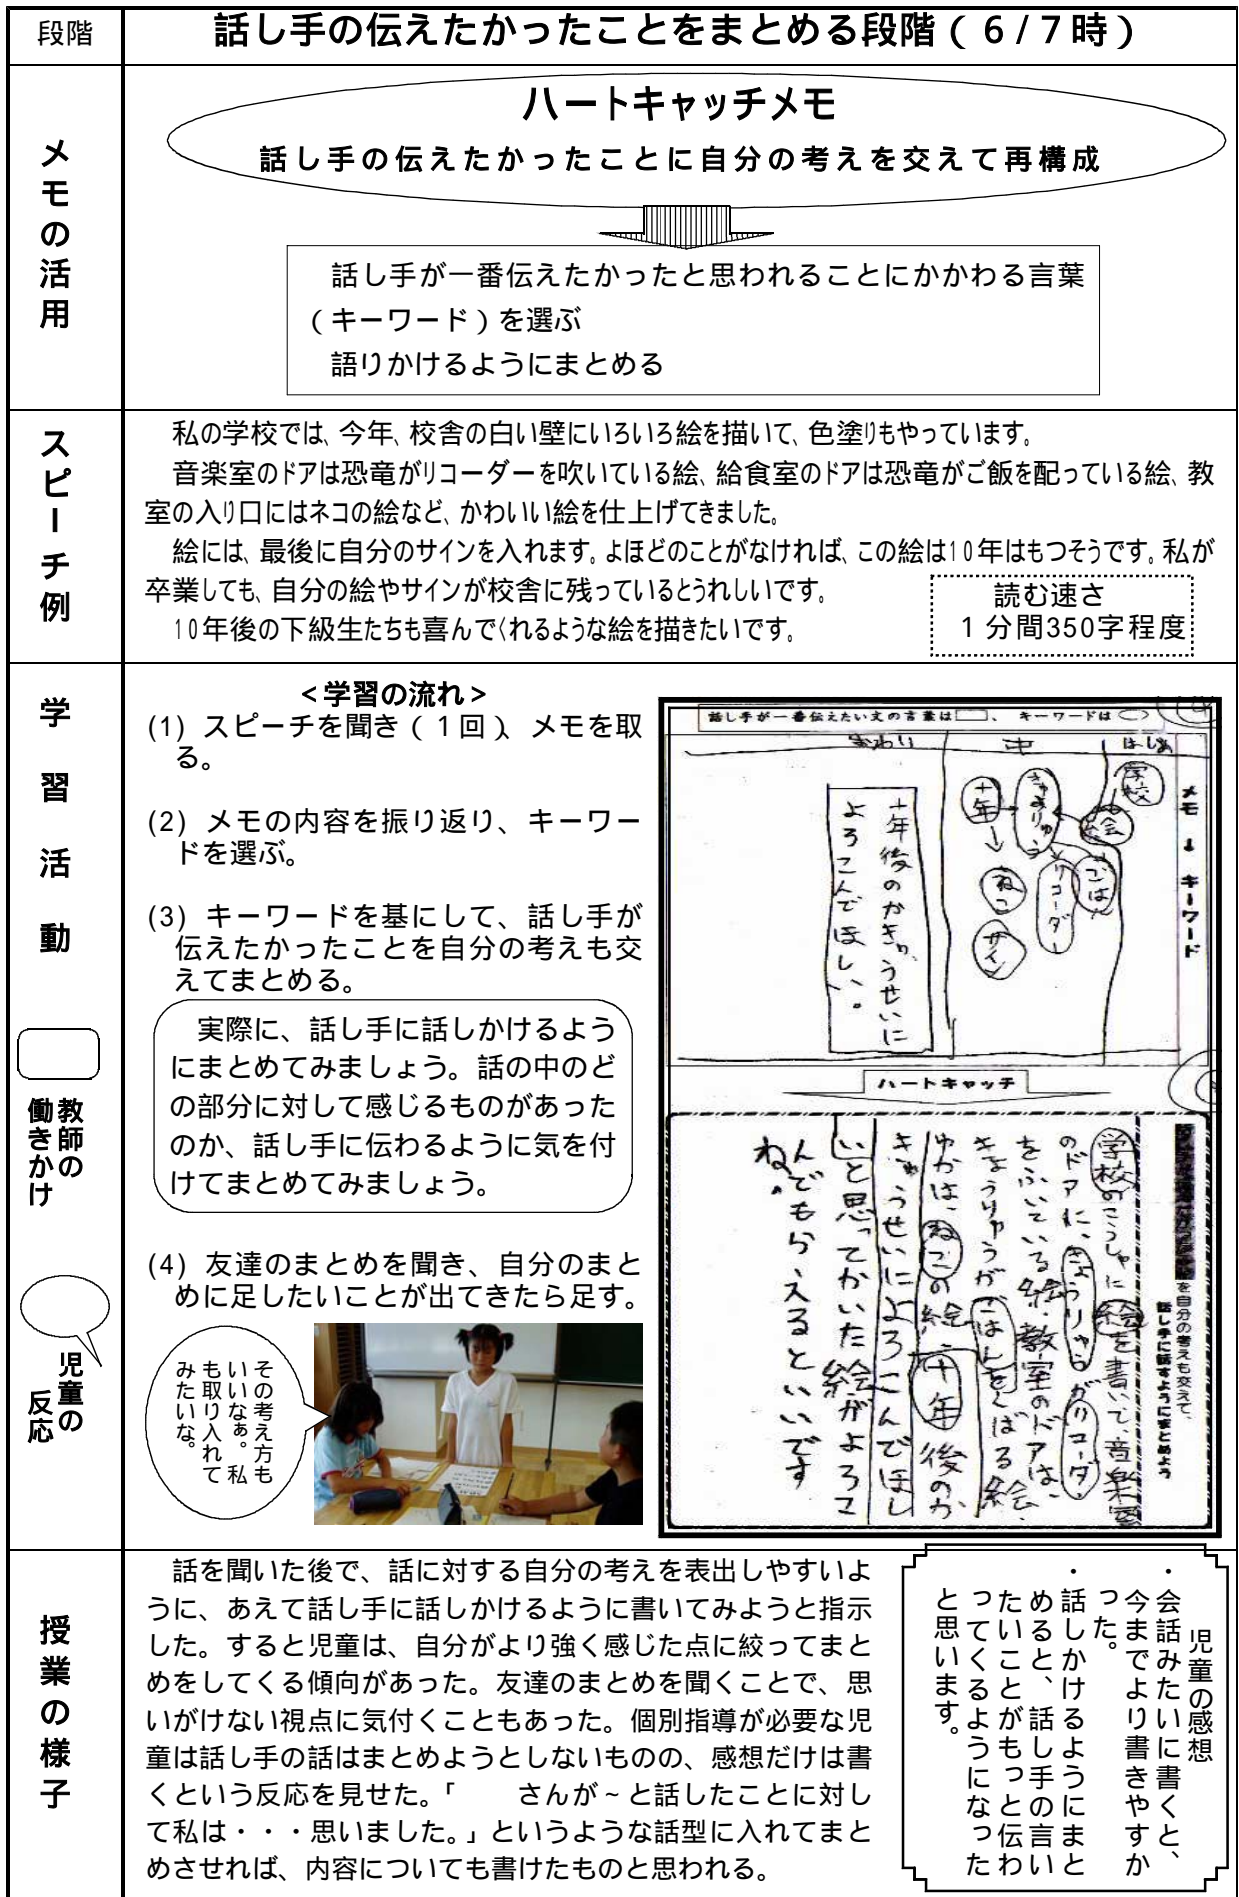 段階
話し手の伝えたかったことをまとめる段階（６/７時）
メモの活用
ハートキャッチメモ
話し手の伝えたかったことに自分の考えを交えて再構成
話し手が一番伝えたかったと思われることにかかわる言葉
（キーワード）を選ぶ
語りかけるようにまとめる
スピーチ例
私の学校では、今年、校舎の白い壁にいろいろ絵を描いて、色塗りもやっています。
音楽室のドアは恐竜がリコーダーを吹いている絵、給食室のドアは恐竜がご飯を配っている絵、教
室の入り口にはネコの絵など、かわいい絵を仕上げてきました。
絵には、最後に自分のサインを入れます。よほどのことがなければ、この絵は10年はもつそうです。私が
卒業しても、自分の絵やサインが校舎に残っているとうれしいです。
10年後の下級生たちも喜んでくれるような絵を描きたいです。
読む速さ
１分間350字程度
学習活動
教師の
働きかけ
児童の
反応
＜学習の流れ＞
(1) スピーチを聞き（１回）、メモを取
る。
(2) メモの内容を振り返り、キーワー
ドを選ぶ。
(3) キーワードを基にして、話し手が
伝えたかったことを自分の考えも交
えてまとめる。
実際に、話し手に話しかけるよう
にまとめてみましょう。話の中のど
の部分に対して感じるものがあった
のか、話し手に伝わるように気を付
けてまとめてみましょう。
(4) 友達のまとめを聞き、自分のまと
めに足したいことが出てきたら足す。
その考え方も
いいなぁ。私
も取り入れて
みたいな。
話し手が一番伝えたい文の言葉は□、キーワードは○
メモ ↓ キーワード
はじめ
中
おわり
学校
絵
ごはん
きょうりゅう
リコーダー
十年
ねこ
サイン
十年後のかきゅうせいに
よろこんでほしい。
ハートキャッチ
を自分の考えも交えて、
話し手に話すようにまとめよう
学校のこうしゃに絵を書いて、音楽室
のドアに、きょうりゅうがリコーダ
をふいている絵、教室のドアは、
きょうりゅうがごはんをくばる絵、
ゆかは、ねこの絵、十年後のか
きゅうせいによろこんでほし
いと思ってかいた絵がよろこ
んでもらえるといいです
ね。
授業の様子
話を聞いた後で、話に対する自分の考えを表出しやすいよ
うに、あえて話し手に話しかけるように書いてみようと指示
した。すると児童は、自分がより強く感じた点に絞ってまと
めをしてくる傾向があった。友達のまとめを聞くことで、思
いがけない視点に気付くこともあった。個別指導が必要な児
童は話し手の話はまとめようとしないものの、感想だけは書
くという反応を見せた。「　　さんが～と話したことに対し
て私は・・・思いました。」というような話型に入れてまと
めさせれば、内容についても書けたものと思われる。
児童の感想
・会話みたいに書くと、
今までより書きやすか
った。
・話しかけるようにまと
めると、話し手の言い
たいことがもっと伝わ
ってくるようになった
と思います。